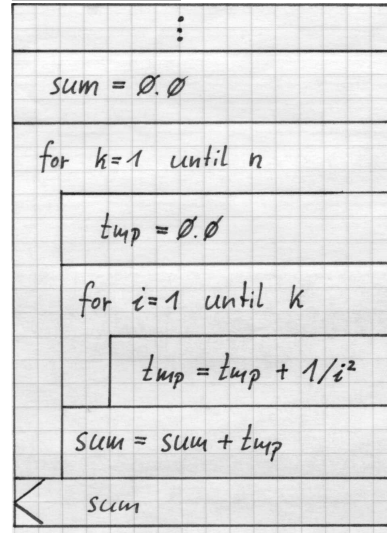 ⋮
sum = 0.0
for k=1 until n
tmp = 0.0
for i=1 until k
tmp = tmp + 1/i²
sum = sum + tmp
sum